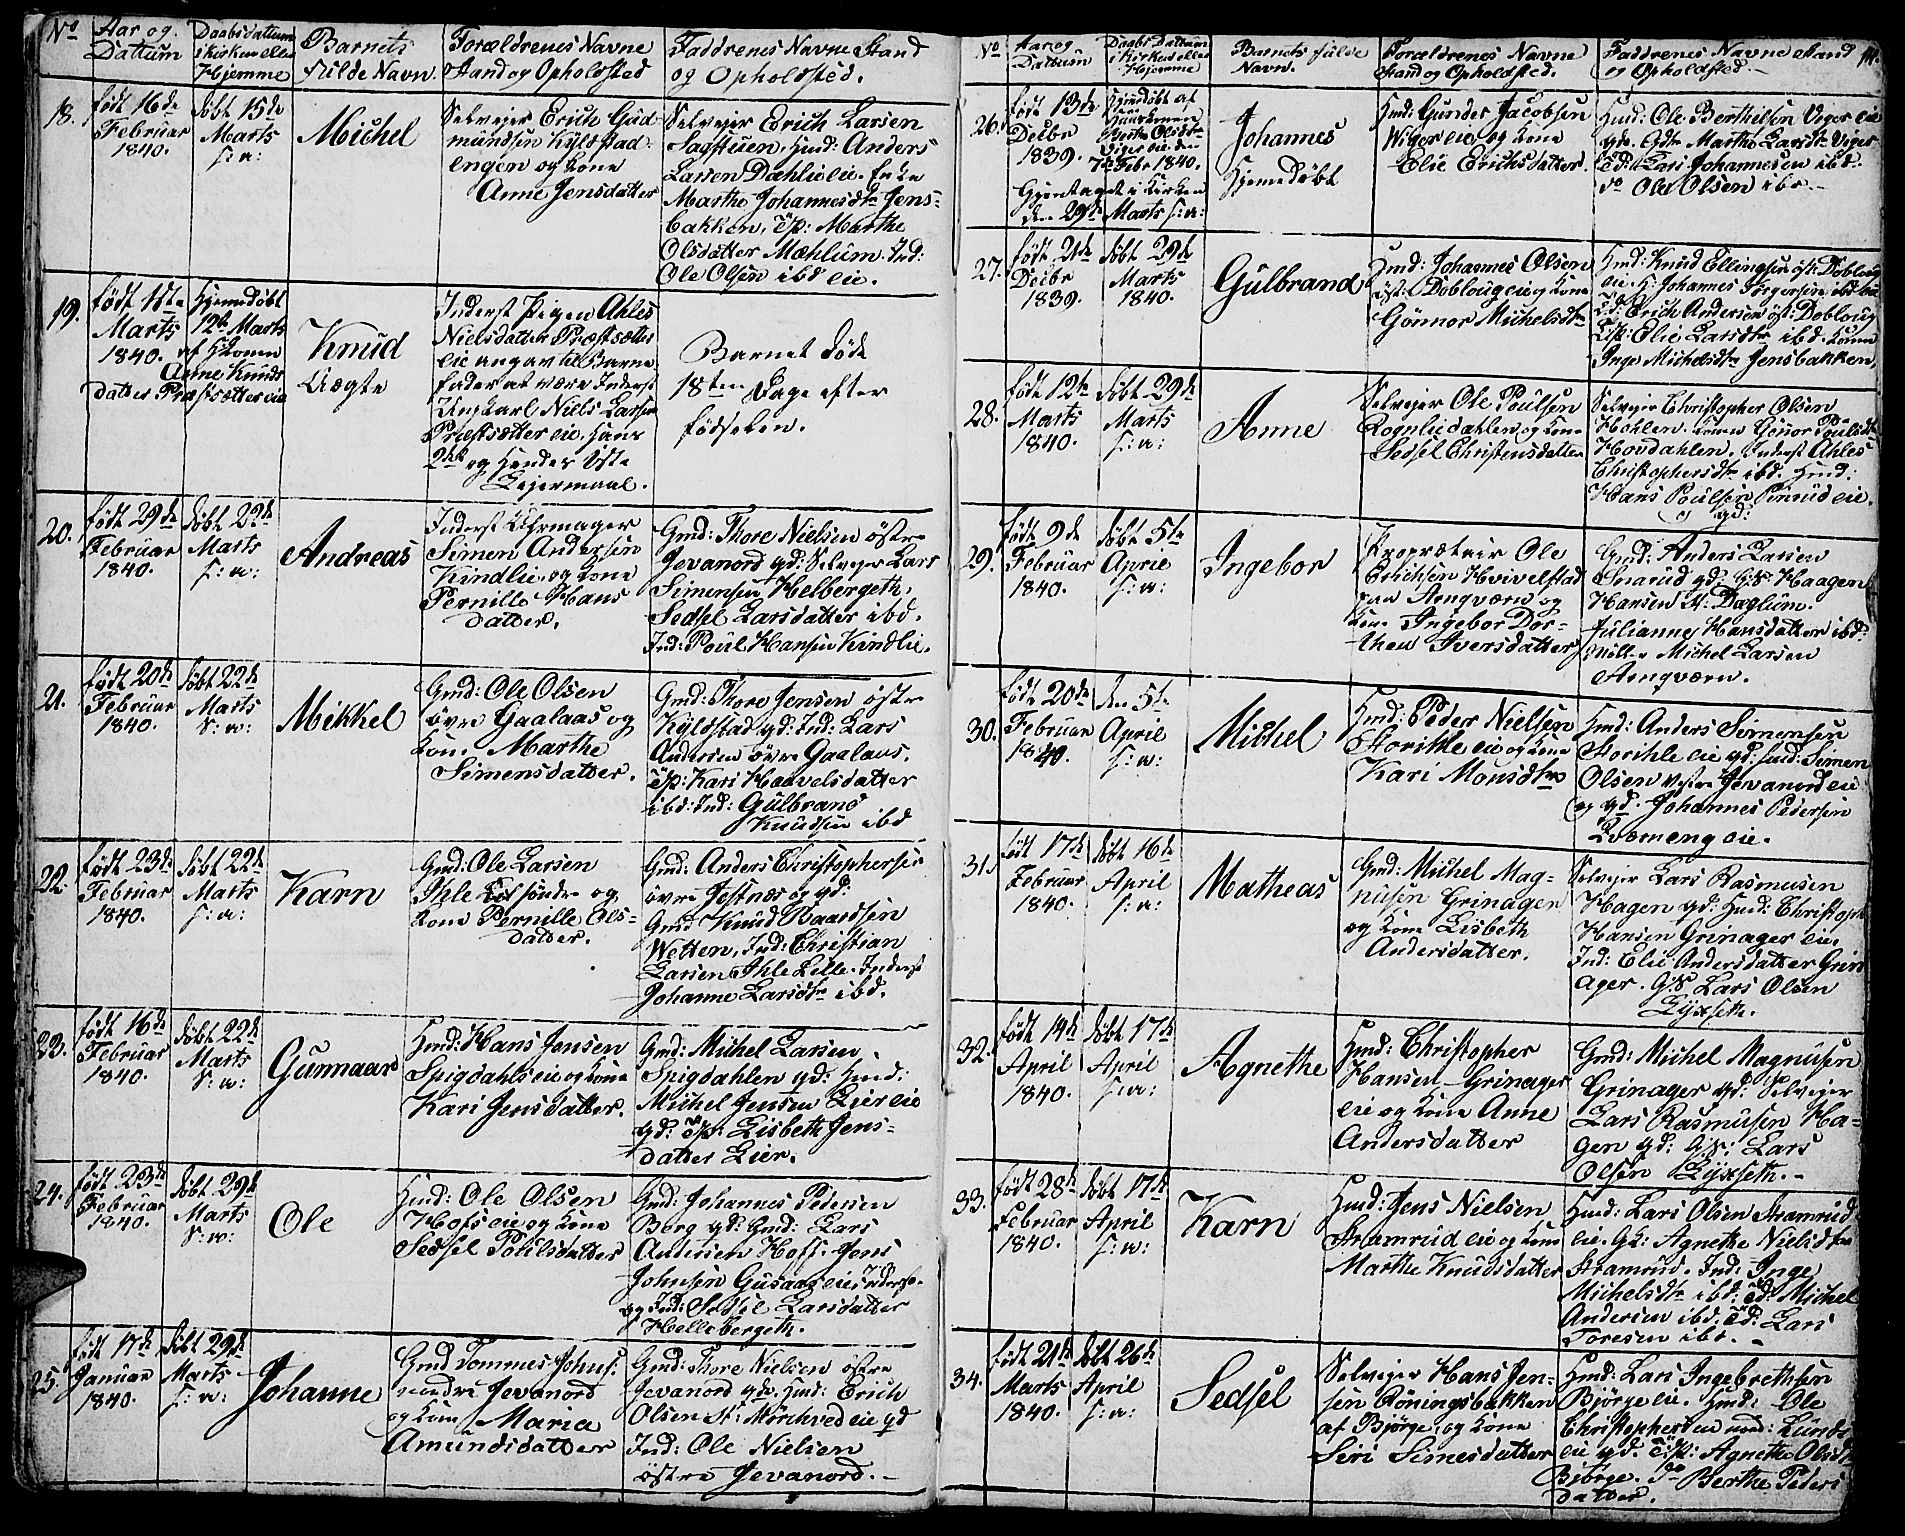 No
Aar og
Datum
Daabsdattum
i Kirken eller
Hjemme
Barnets
fulde Navn
Forældrenes Navne
Stand og Opholdsted
Faddrenes Navne Stand
og Opholdsted.
18.
født 16de
Februar
1840.
døbt 15de
Marts
s: a:
Michel
Selvejer Erich Gud
mundsen Kylstad
engen og Kone
Anne Jensdatter
Selvejer Erich Larsen
Sagstuen, Hmd: Anders
Larsen Dæhlie eie. Enke
Marthe Johannesdtr Jens-
bakken, Tp: Marthe
Olsdatter Mæhlum. Ind:
Ole Olsen ibd eie.
19.
født 1ste
Marts
1840.
Hjemedøbt
12te Marts
af Konen
Anne Knuds
datter Præstsætter eie
Knud
Uægte
Inderst Pigen Ahles
Nielsdatter Præstsætter
eie angav til Barne
fader at være Inderst
Ungkarl Niels Larsen
Præstsætter eie. Hans
2det og Hendes 1ste
Lejermaal.
Barnet døde
18ten Dage efter
fødselen.
20.
født 29de
Februar
1840.
døbt 22de
Marts
s: a:
Andreas
Inderst Uhrmager
Simen Andersen
Kindlie, og Kone
Pernille Hans
datter.
Gmd: Thore Nielsen østre
Jevanord gd: Selvejer Lars
Simensen Helbergeth,
Sedsel Larsdatter ibd.
Ind: Poul Hansen Kindlie.
21.
født 20de
Februar
1840.
døbt 22de
Marts
s: a:
Mikkel
Gmd: Ole Olsen
øvre Gaalaas og
Kone Marthe
Simensdatter.
Gmd: Thore Jensen østre
Kyldstad gd: Ind: Lars
Andersen øvre Gaalaas.
Tp: Kari Haavelsdatter
ibd: Ind: Gulbrand
Knudsen ibd
22.
født 23de
Februar
1840.
døbt 22de
Marts
s: a:
Karn
Gmd: Ole Larsen
Ihle søndre og
Kone Pernille Ols-
datter.
Gmd: Anders Christophersen
øvre Jestnes gd:
Gmd Knud Baardsen
Wetten, Ind: Christian
Larsen Ihle Lille. Inderst
Johanne Larsdtr ibd.
23.
født 16de
Februar
1840.
døbt 22de
Marts
s: a:
Gunnaar
Hmd: Hans Jensen
Spigdahls eie og Kone
Kari Jensdatter.
Gmd: Michel Larsen
Spigdahlen gd: Hmd:
Michel Jensen Lier eie
gd: Tp: Lisbeth Jens-
datter Lier.
24.
født 23de
Februar
1840.
døbt 29de
Marts
s: a:
Ole
Hmd: Ole Olsen
Hofs eie og Kone
Sedsel Poulsdatter
Gmd: Johannes Pedersen
Berg gd: Gmd: Lars
Andersen Hoff. Jens
Johnsen Gusaas eie Inderst
og Ind: Sedsel Larsdatter
Hellebergeth.
25.
født 17de
Januar
1840.
døbt 29de
Marts
s: a:
Johanne
Gmd Tommes Johns:
nordre Jevanord
og Kone Maria
Amundsdatter
Gmd: Thore Nielsen østre
Jevanord gd: Hmd: Erich
Olsen St: Mørchved eie gd
Ind: Ole Nielsen
østre Jevanord.
No
Aar og
Datum
Daabs Dattum
i Kirken eller
Hjemme
Barnets fulde
Navn.
Forældrenes Navne
Stand og Opholdsted.
Faddrenes Navne Stand
og Opholdsted.
14.
26.
født 13de
Decbr
1839.
Hjemedøbt af
Huuskonen
Berthe Olsdtr
Viger eie den
7de Febr 1840.
Gjentaget i Kirken
den 29de Marts s: a:
Johannes
Hjemedøbt
Hmd: Gunder Jacobsen
Wiger eie og Kone
Elie Erichsdatter.
Hmd: Ole Berthelsen Viger eie
gde. Gdtr Marthe Larsdtr Viger
Ed: Lars Johannesen ibd.
do Ole Olsen ibd.
27.
født 21de
Decbr
1839.
døbt 29de
Marts
1840.
Gulbrand
Hmd: Johannes Olsen
øst: Dobloug eie og Kone
Gønnor Michelsdtr
Hmd: Knud Ellingsen øst: Doblou
eie. H: Johannes Torgersen ibd eie
Ed: Erich Andersen øst: Doblou
Tp: Elie Larsdtr ibd. Konen
Inge Michelsdtr Jensbakken,
28.
født 12te
Marts
1840.
døbt 29de
Marts
s: a:
Anne
Selvejer Ole Poulsen
Rognliedahlen og Kone
Sedsel Christensdatter
Selvejer Christopher Olsen
Hohlen. Konen Gønor Poulsdtr
Hovdahlen. Inderst Ahles
Christophersdtr ibd. Hmd:
Hans Poulsen Penrud eie.
og gd:
29.
født 9de
Februar
1840.
døbt 5te
Aprie
s: a:
Ingebor
Proprætair Ole
Erichsen Hvivelstad
paa Aengværn og
Kone Ingebor Dor-
thea Iversdatter
Gmd: Anders Larsen
Snarud gd: GS Haagen
Hansen St: Daglum.
Julianne Hansdatter ibd.
Møller Michel Larsen
Aengværn.
30.
født 20de
Februar
1840.
den 5te
April
s: a:
Michel
Hmd: Peder Nielsen
Storihle eie og Kone
Kari Monsdtr
Hmd: Anders Simensen
Storihle eie gd: Hmd: Simen
Olsen vestre Jevanord eie
og gd. Johannes Pedersen
Kværneng eie.
31.
født 17de
Februar
1840.
døbt 16de
April
s: a:
Matheas
Gmd: Michel Mag-
nusen Grinager
og Kone Lisbeth
Andersdatter.
Selvejer Lars Rasmusen
Hagen gd: Hmd: Christoph
Hansen Grinager eie.
Ind: Elie Andersdatter Grin
ager. GS Lars Olsen
Lyxseth.
32.
født 14de
April
1840.
døbt 17de
April
s: a:
Agnethe
Hmd: Christopher
Hansen Grinager
eie og Kone Anne
Andersdatter
Gmd: Michel Magnusen
Grinager gd: Selvejer
Lars Rasmusen Ha-
gen gd: GS: Lars
Olsen Lyxseth.
33.
født 28de
Februar
1840.
døbt 17de
April
s: a:
Karn
Hmd: Jens Nielsen
Stramrud eie og Kone
Marthe Knudsdatter
Hmd: Lars Olsen Stramrud
eie. Gk: Agnethe Nielsdtr
Stramrud. Ind: Inge
Michelsdtr ibd: Ed: Michel
Andersen ibd. Ed: Lars
Toresen ibd.
34.
født 21de
Marts
1840.
døbt 26de
April
s: a:
Sedsel
Selvejer Hans Jen-
sen Røningsbakken
af Bjørge, og Kone
Siri Simesdatter
Hmd: Lars Ingebrethsen
Bjørge eie. Hmd: Ole
Christophersen ned: Lunde
eie gd. Tp: Agnethe Olsdtr
Bjørge. do Berthe Peders
datter.